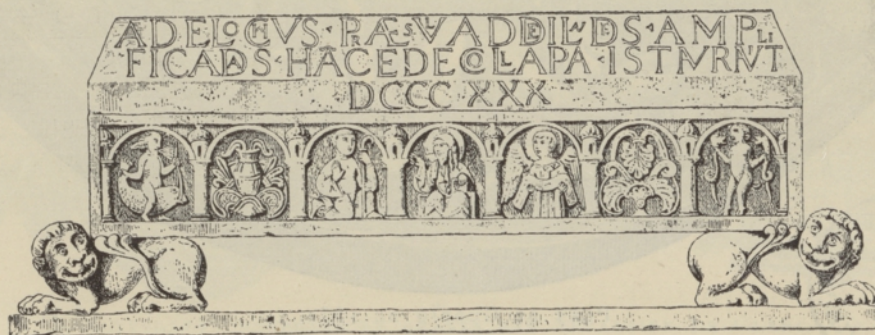 ADELOCHVS · PRÆSVL AD DEI LVDES · AMPLI
FICADAS · HĀC EDE COLLAPA · ISTVRNVT
DCCC XXX